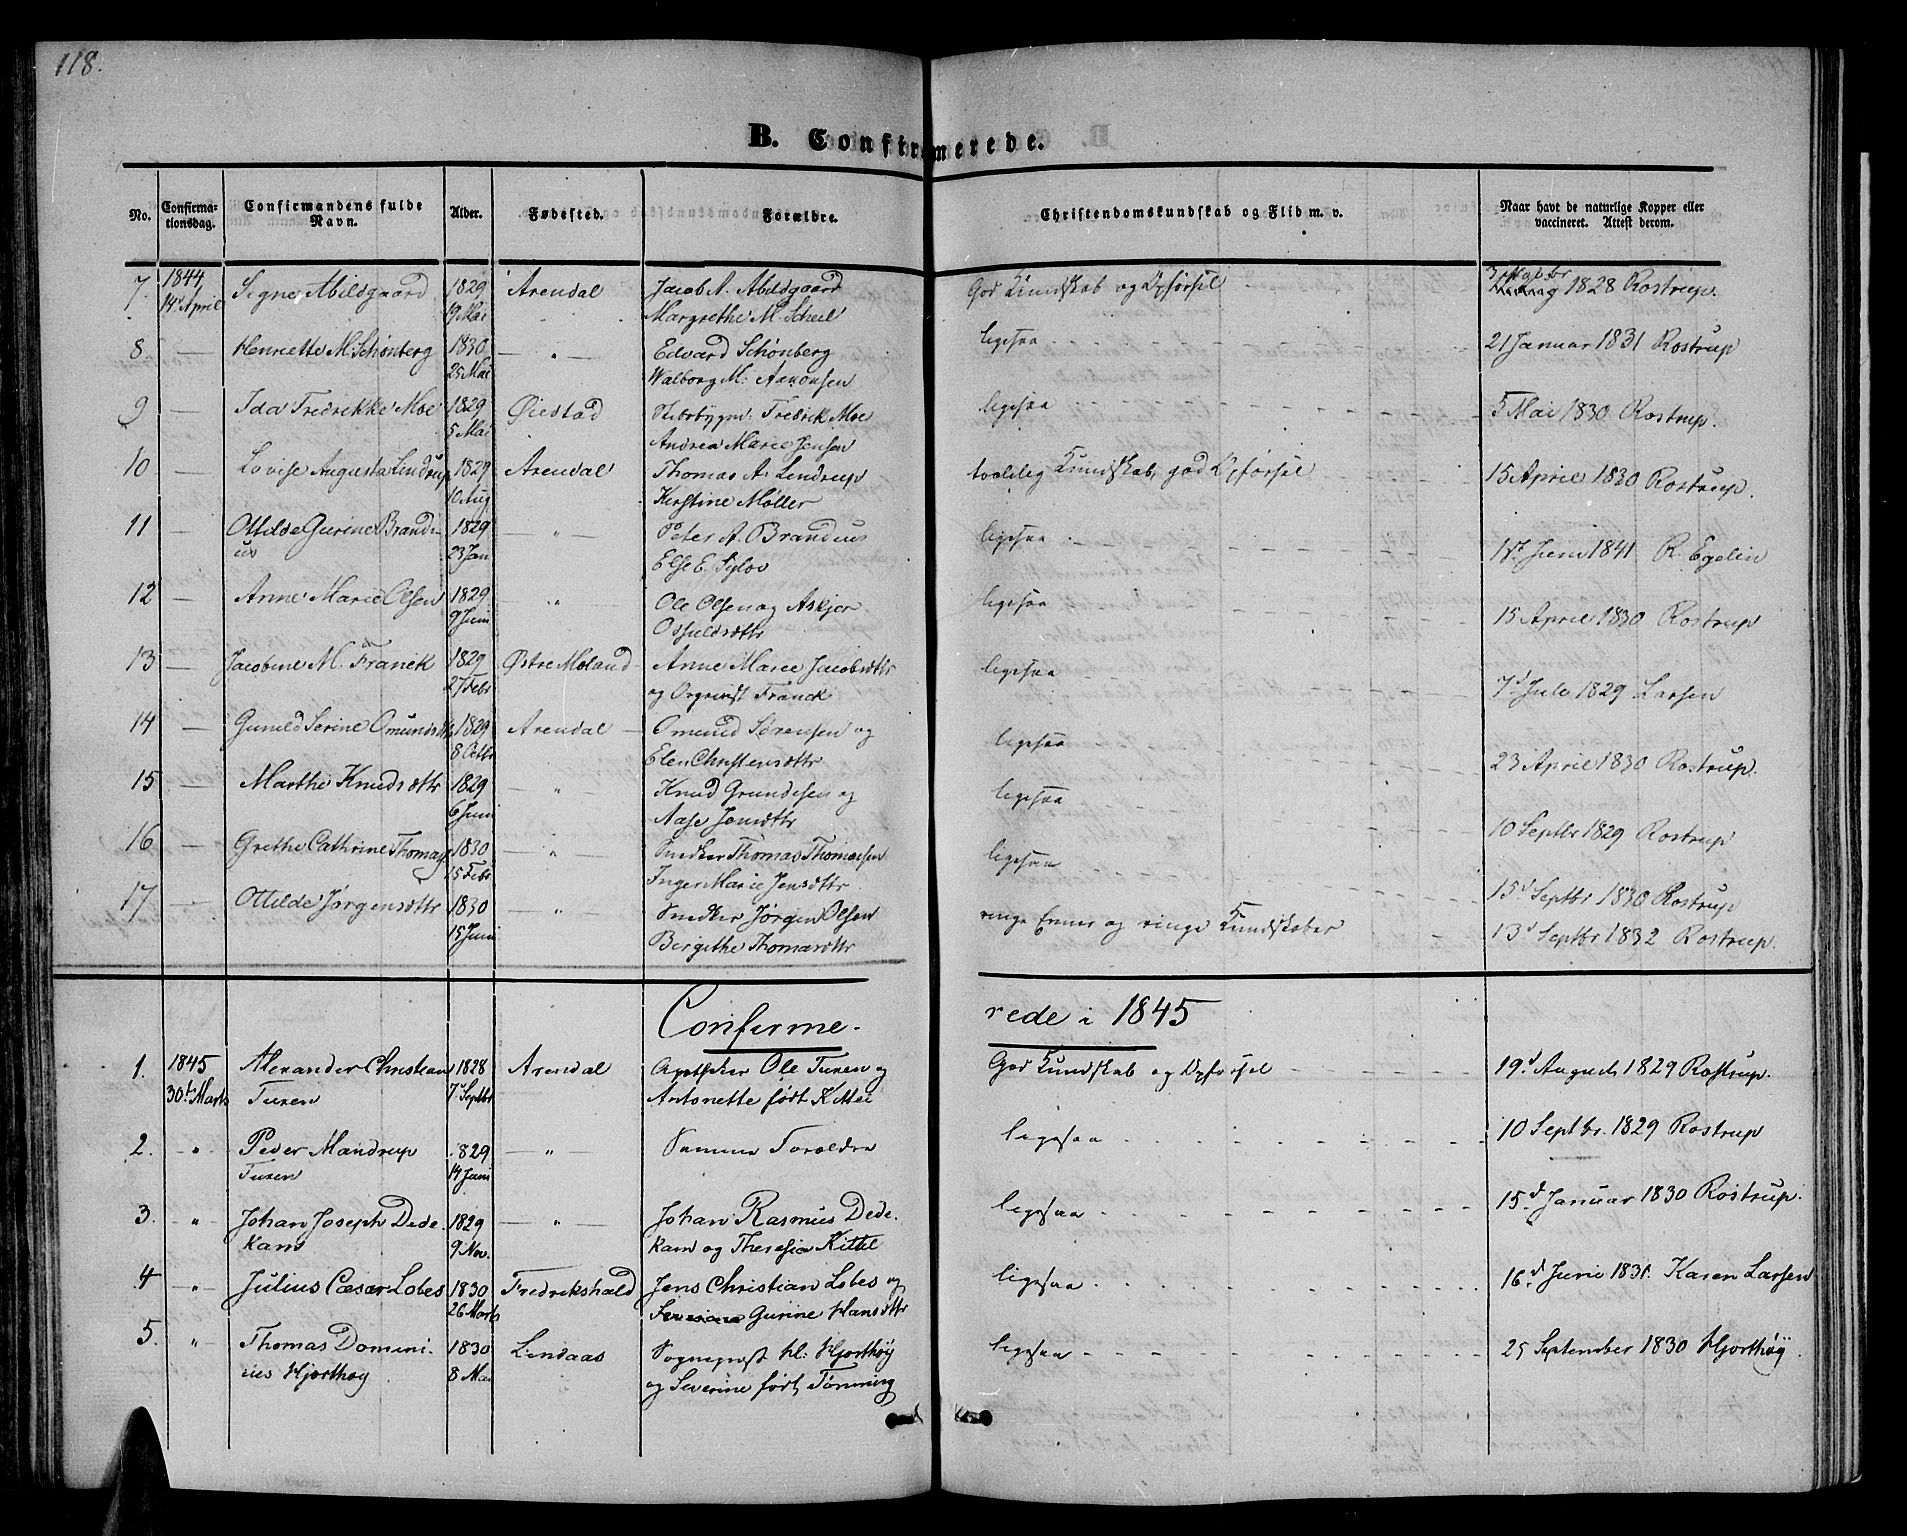 118.
B. Confirmerede.
No. Confirmationsdag. Confirmandens fulde Navn. Alder. Fødested. Forældre. Christendomskundskab og Flid m. v. Naar havt de naturlige Kopper eller vaccineret. Attest derom.
7. 1844 Signe Abildgaard 1829 Arendal Jacob A. Abildgaard God Kundskab og Opførsel 1828 Rostrup.
14d April 19 Mai Margrethe M. Scheel
8. — Henriette M. Schønberg 1830 — " — Edvard Schønberg ligesaa 21 Januar 1831 Rostrup
25 Mai Walborg M: Aanonsen
9 — Ida Fredrikke Moe 1829 Øiestad Skibsbygm: Fredrik Moe ligesaa 5 Mai 1830 Rostrup.
5 Mai Andrea Marie Jensen
10 — Lovise Augusta Lindrup 1829 Arendal Thomas A. Lindrup taalelig Kundskab, god Opførsel 15 April 1830 Rostrup.
10 Aug Kirstine Møller
11 — Ottilde Gurine Brandi- 1829 — " — Peter A. Brandius ligesaa 17 Juni 1841 R. Egelin
us 23 Jan Else E. Sylov
12 — Anne Marie Olsen 1829 — " — Ole Olsen og Askjer ligesaa 15 April 1830 Rostrup
9 Juni Osfuldsdttr
13 — Jacobine M. Franck 1829 Østre Moland Anne Marie Jacobsdttr ligesaa 7d Juli 1829 Larsen
27 Febr og Franck
14 — Guneld Serine Omundsdtt 1829 Arendal — Omund Sørensen og ligesaa 23 April 1830 Rostrup.
8 Octbr Elen Christensdttr
15 — Marthe Knudsdttr 1829 — " — Knud Grundesen og ligesaa 10 Septbr 1829 Rostrup
6 Juni Aase Jensdttr
16 — Grethe Cathrine Thomas 1830 — " — Snedker Thomas Thomassen ligesaa 15d Septbr 1830 Rostrup
15 Febr Inger Marie Jensdttr
17 — Ottilde Jørgensdttr 1830 — " — Snedker Jørgen Olsen ringe Evner og ringe Kundskaber 13d Septbr 1832 Rostrup.
15 Juni Bergithe Thomasdttr
Confirme- rede i 1845
1. 1845 Alexander Christian 1828 Arendal Apotheker Ole Tuxen og God Kundskab og Opførsel 19d August 1829 Rostrup.
30t Marts Tuxen 7 Septbr Antonette født Kittel
2. " Peder Mandrup 1829 — " — Samme Forældre ligesaa 10 Septbr. 1829 Rostrup
Tuxen 14 Juni
3. " Johan Joseph Dede- 1829 — " — Johan Rasmus Dede- ligesaa 15d Januar 1830 Rostrup.
kam 9 Nov. kam og Theresia Kittel
4 " Julius Cæsar Lobes 1830 Fredrikshald Jens Christian Lobes og ligesaa 16d Juni 1831. Karen Larsen
26 Marts Gurine Hansdttr
5. " Thomas Domini- 1830 Lindaas Sognepræst hr: Hjorthøy ligesaa 25 September 1830 Hjorthøy
cus Hjorthøy 8 Mai og Severine født Tønning